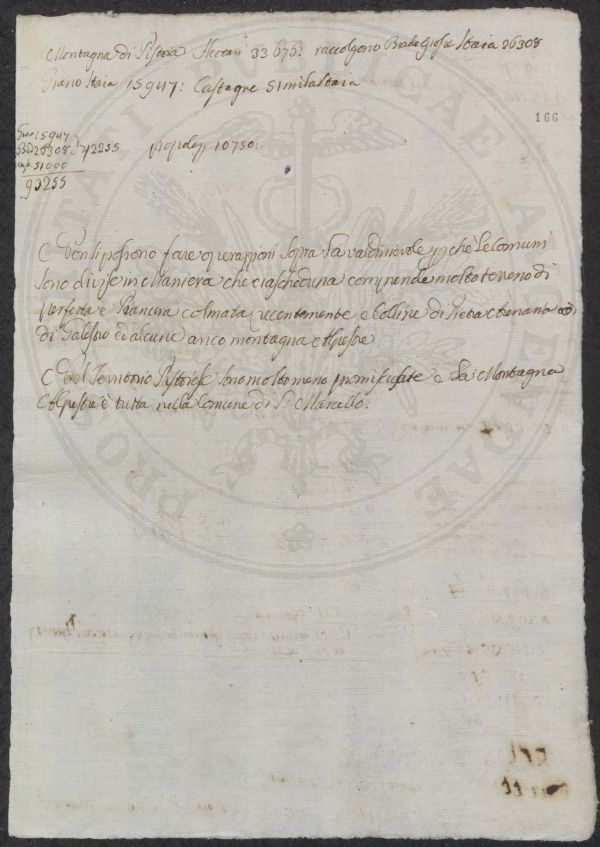 Montagna di Pistoia Ettari 33676: raccolgono Biade Grosse Staia 26308
Grano Staia 15947: Castagne 51 mila Staia
166
Grano 15947
Bia 26308 42255
Cast 51000
93255
popolaz 10750:
Non si possono fare operazioni sopra la valdinievole che le Comuni
sono divise in Maniera che ciascheduna comprende molto terreno di
perfetta e Pianura colmata recentemente e Colline di Pietra e
di Galestro ed alcune anco montagna alpestre
Nel Territorio Pistojese sono molto meno e La Montagna
Alpestre è tutta nella Comune di S. Marcello.